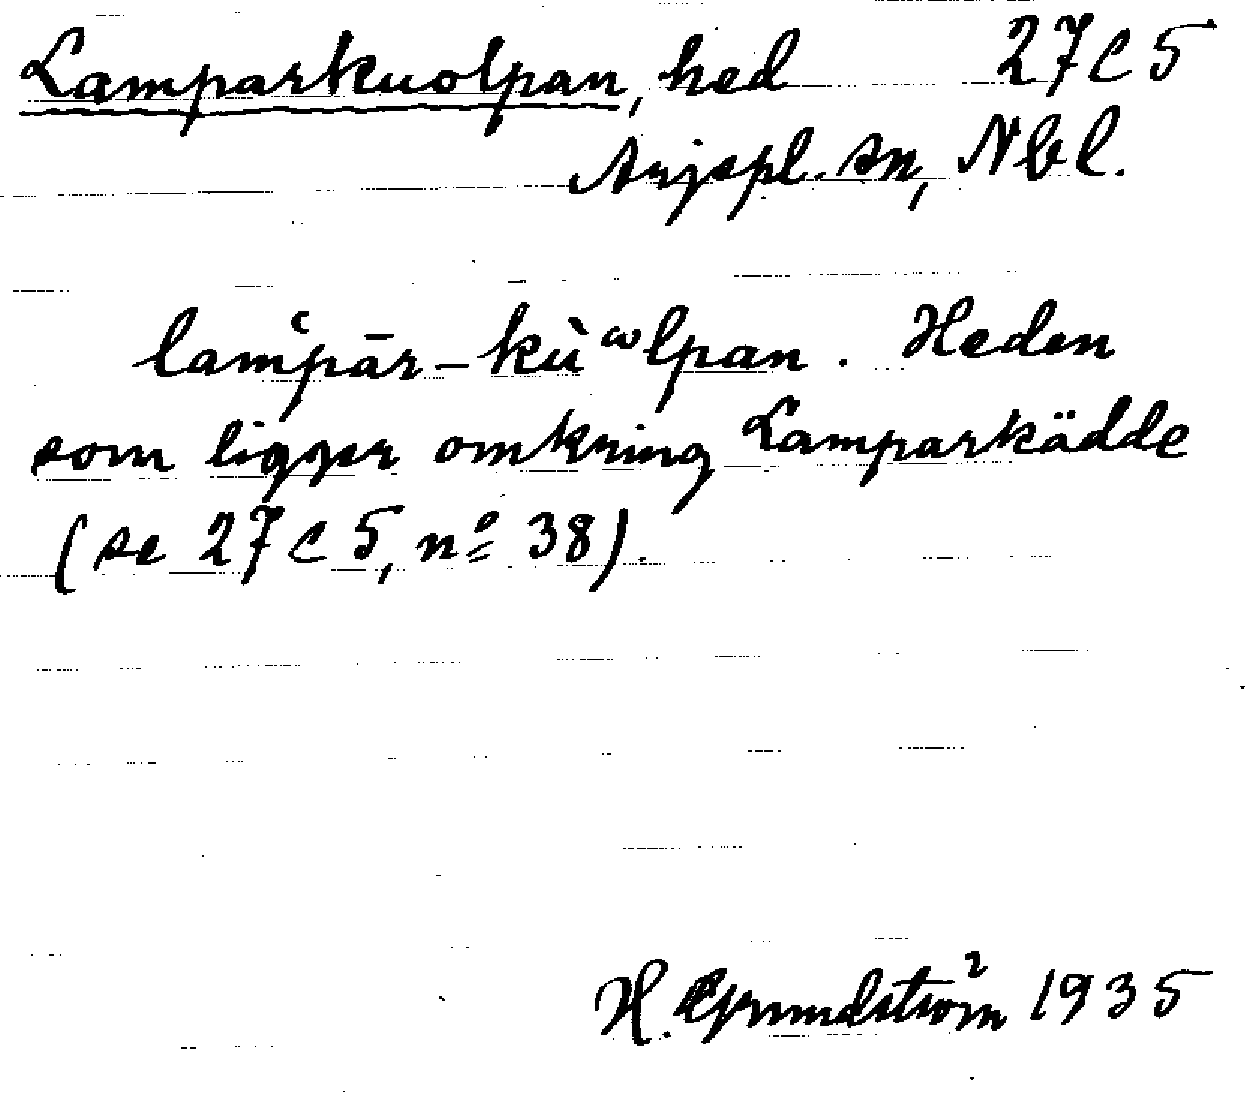 Lamparkuolpan, hed 27 C 5
Arjepl. sn, Nbl.
lam̔pār-kùωlpan. Heden
som ligger omkring Lamparkädde
(se 27 C 5, nº 38).
H. Grundström 1935